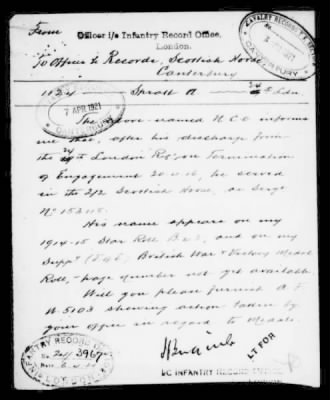 From
Officer i/c Infantry Record Office,
London.
To Officer i/c Records, Scottish Horse
Canterbury
CAVALRY RECORD
CANTERBURY
1124 Sproll A 24th Ldn
7 APR 1921
CANTERBURY
The above-named N.C.O informs
me that, after his discharge from
the 24th London Regt on Termination
of Engagement he served
in the 2/2 Scottish Horse, as Sergt
No
His name appears on my
1914-15 Star Roll and on my
Suppt British War & Victory Medal
Roll, - page number not yet available.
Will you please furnish A F
W.5103 showing action taken by
your office in regard to Medals.
LT FOR
I/C INFANTRY RECORD OFFICE
INFANTRY RECORD OFFICE
No 3967
LONDON